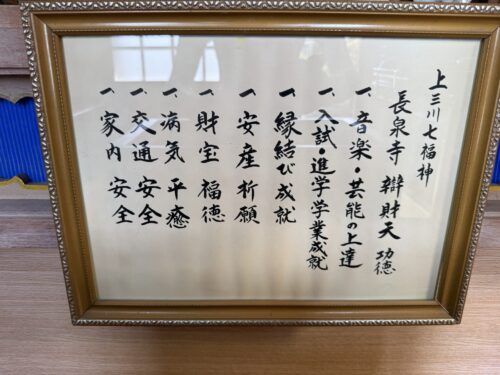 上三川七福神
長泉寺 辯財天 功徳
一、音楽・芸能の上達
一、入試・進学・学業成就
一、縁結び成就
一、安産祈願
一、財宝 福徳
一、病気 平癒
一、交通 安全
一、家内 安全